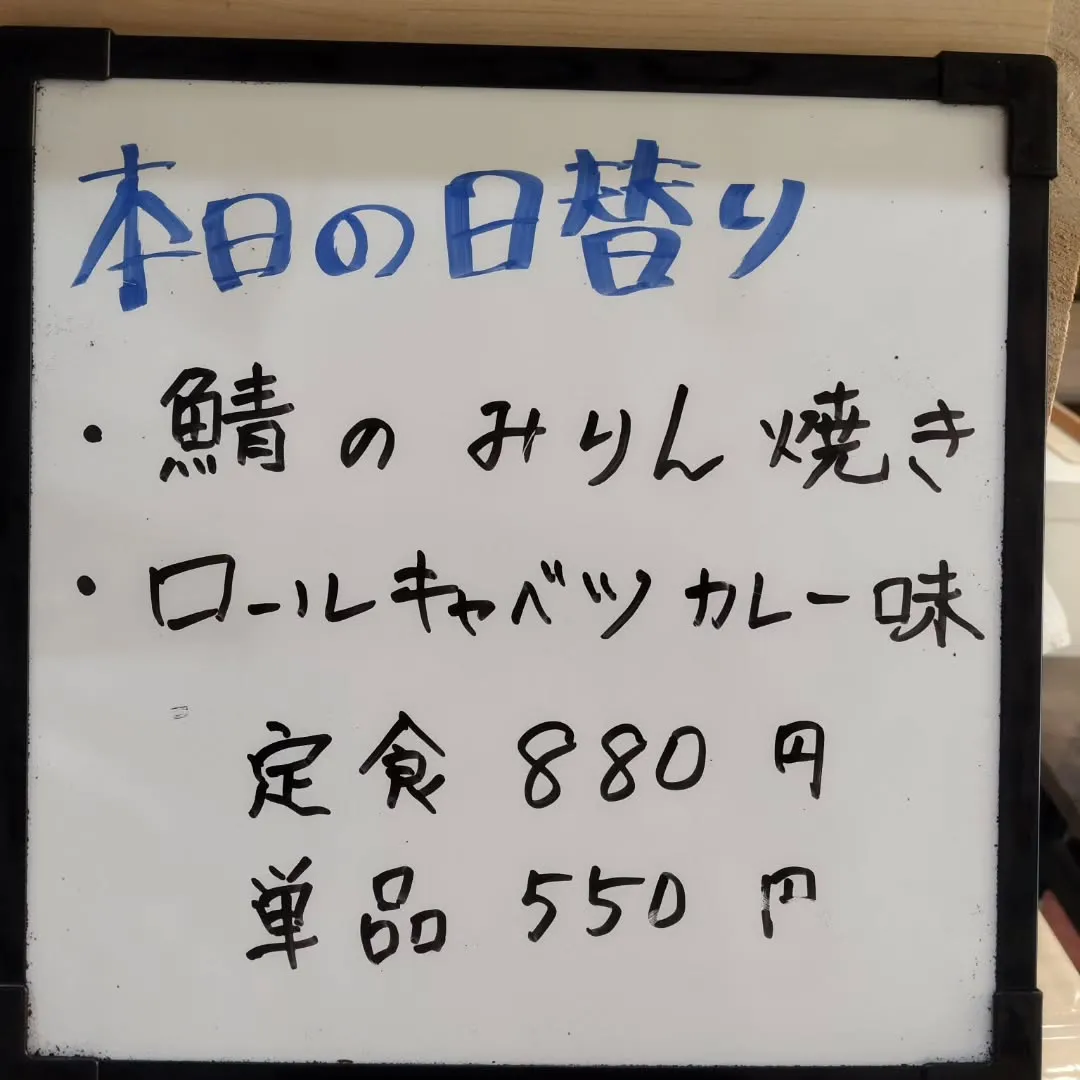 本日の日替り
・鯖のみりん焼き
・ロールキャベツカレー味
定食 880円
単品 550円